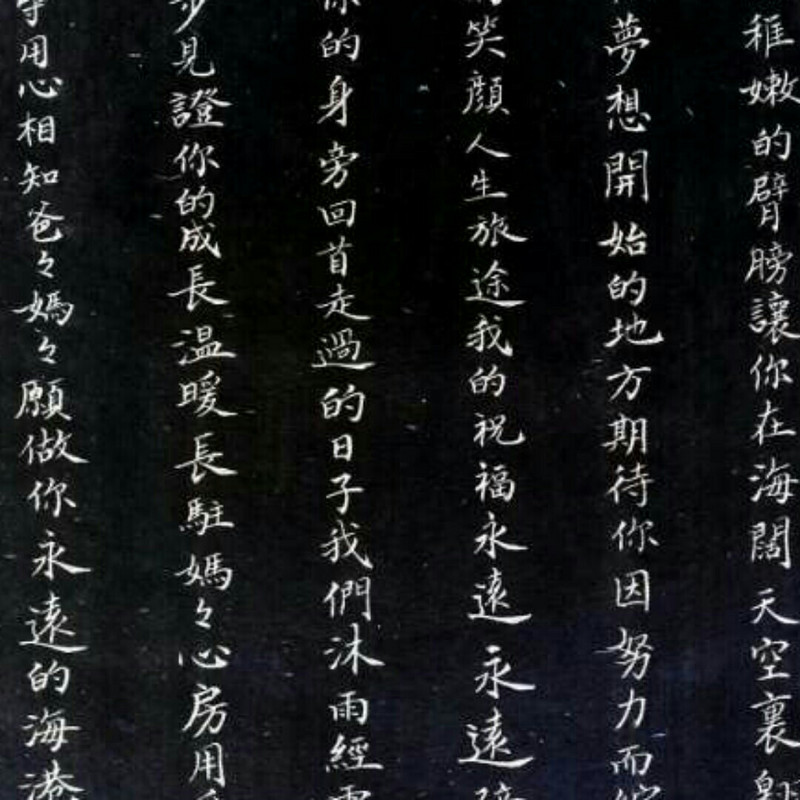 稚嫩的臂膀讓你在海闊天空裏
夢想開始的地方期待你因努力而
笑顏人生旅途我的祝福永遠永遠
你的身旁回首走過的日子我們沐雨經
步見證你的成長温暖長駐媽々心房用
用心相知爸々媽々願做你永遠的海港